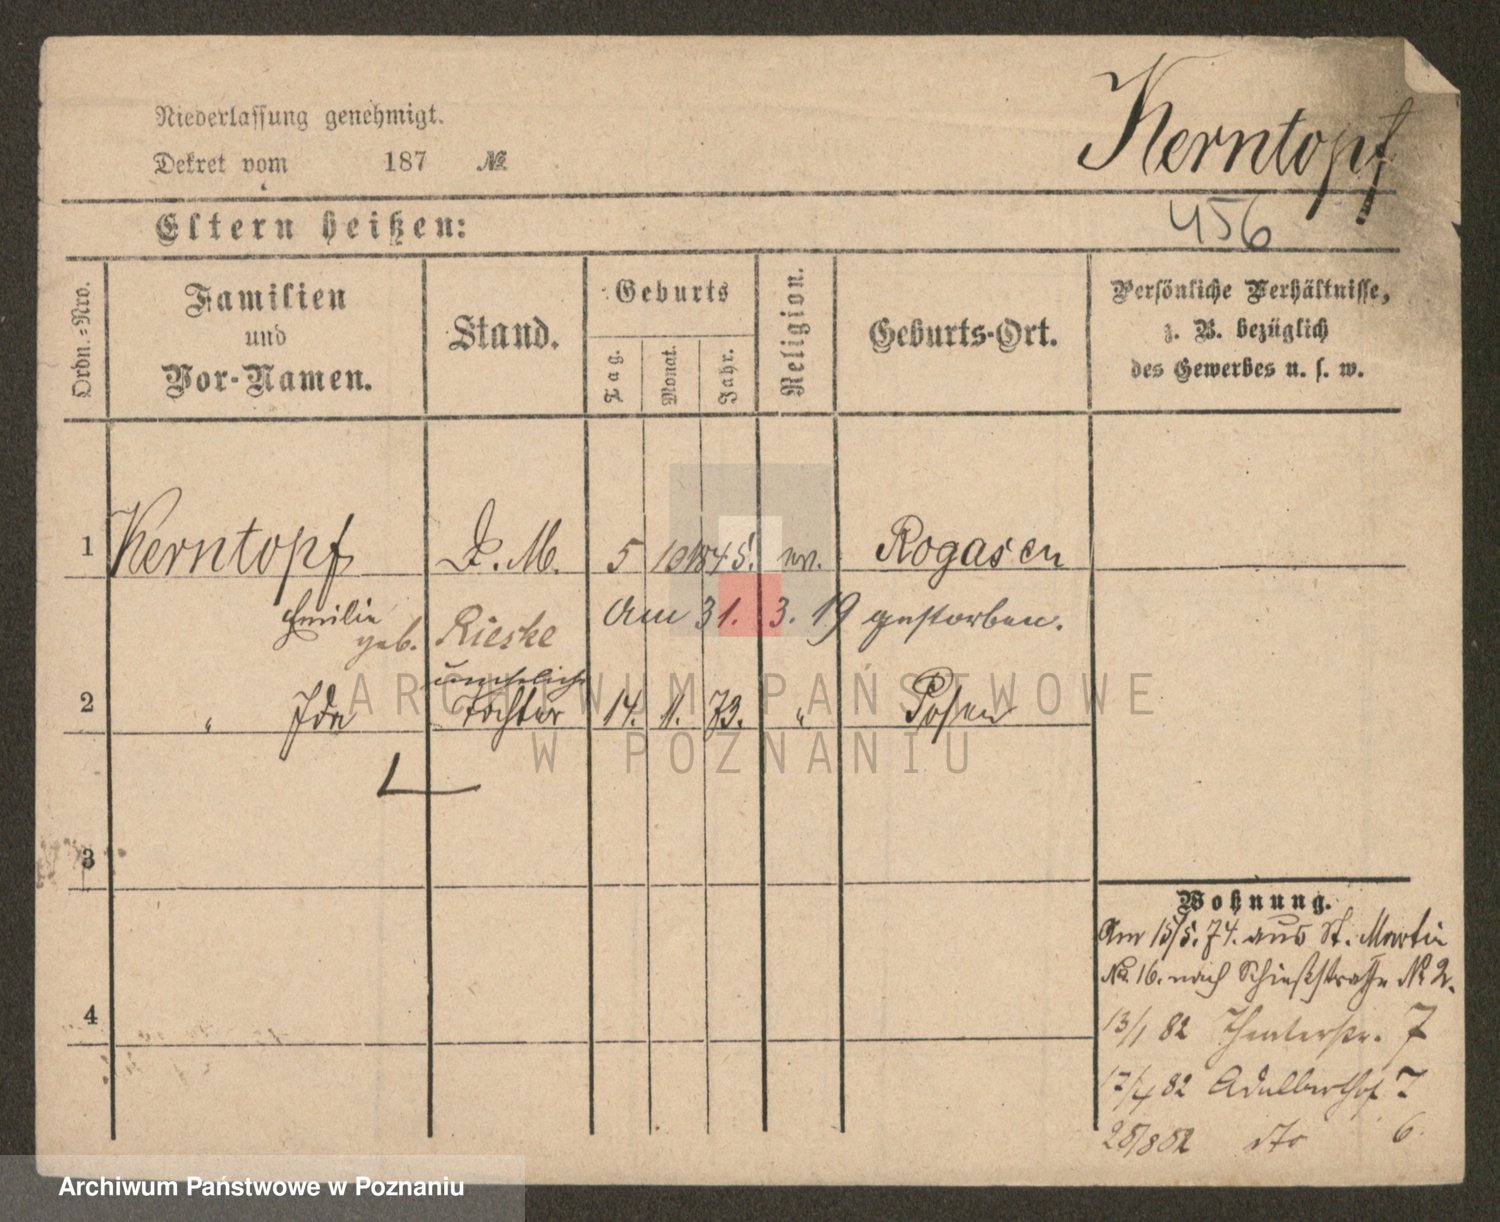 Niederlassung genehmigt.
Kerntopf
Dekret vom 187 №
Eltern heißen:
456
Ordn.=Nro.
Familien
und
Vor-Namen.
Stand.
Geburts
Tag.
Monat.
Jahr.
Religion.
Geburts-Ort.
Persönliche Verhältnisse,
z. B. bezüglich
des Gewerbes u. s. w.
1 Kerntopf D. M. 5 10 1845. ev. Rogasen
Emilie
Am 31. 3. 19 gestorben.
geb. Rieske
uneheliche
2 " Ida Tochter 14. 11. 73. " Posen
ARCHIWUM PAŃSTWOWE
W POZNANIU
3
4
Wohnung.
Am 15/5. 74. aus St. Martin
No. 16. nach Schießstraße № 2.
13/1 82 Theaterstr. 7
17/4 82 Adalberthof 7
25/8 82 dto 6
Archiwum Państwowe w Poznaniu